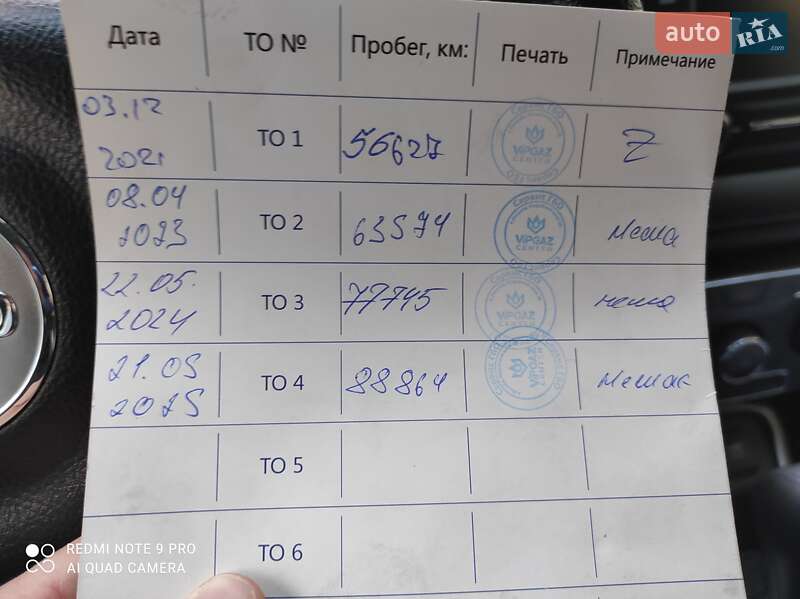 auto RIA.com
Дата ТО № Пробег, км: Печать Примечание
03.12
2021 ТО 1 56627 VIPGAZ CENTRO Z
08.04
2023 ТО 2 63574 Сервіс ГБО VIPGAZ CENTRO
22.05.
2024 ТО 3 77745 VIPGAZ CENTRO
21.05
2025 ТО 4 88864
ТО 5
ТО 6
REDMI NOTE 9 PRO
AI QUAD CAMERA